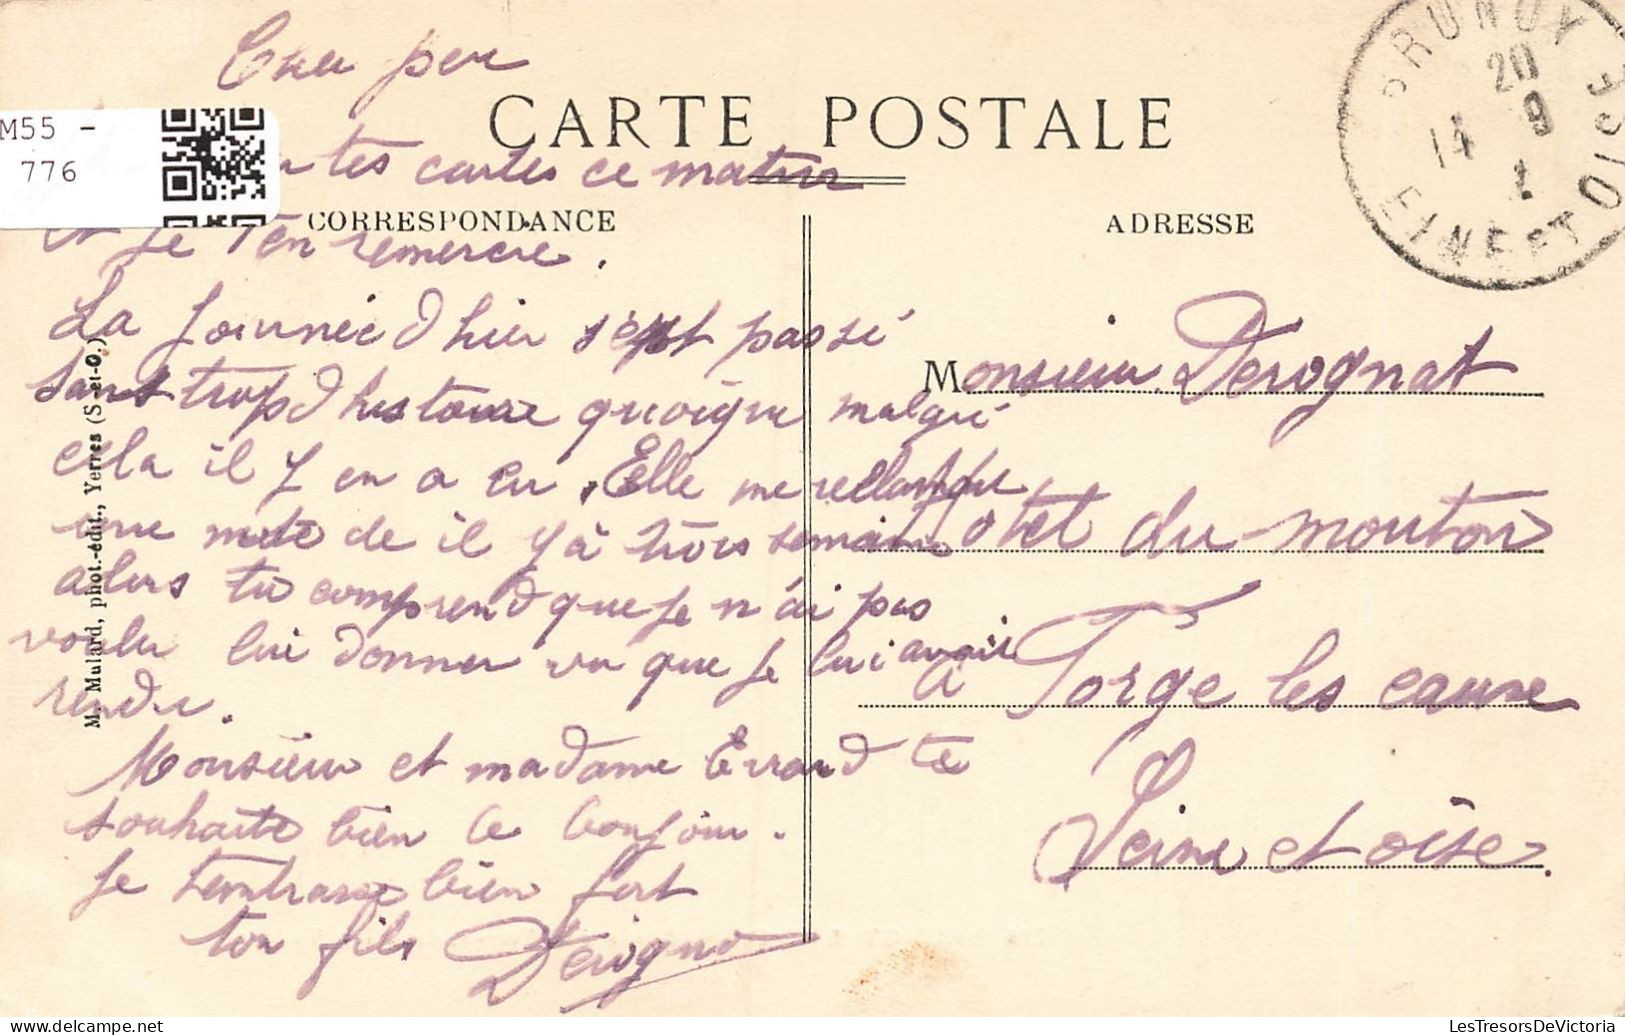 Cher per
CARTE POSTALE
M55 -
776
tes cartes ce matin
CORRESPONDANCE
ADRESSE
et je t'en remercie.
La journée d hier s'est passé
sans trop d histoire quoique malgré
cela il y en a eu. Elle me reclamfut
une note de il y à trois semaine
alors tu comprend que je n'ai pas
voulu lui donner vu que je lui avais
rendu.
Monsieur et madame Evrard te
souhaite bien le bonjour.
Je t'embrasse bien fort
ton fils Derogna
M. Mulard, phot.-édit., Yerres (S.-et-O.)
BRUNOY
20
14 9
SEINE ET OISE
Monsieur Derognat
otel du mouton
à Forge les eaux
Seine et oise.
LesTresorsDeVictoria.com